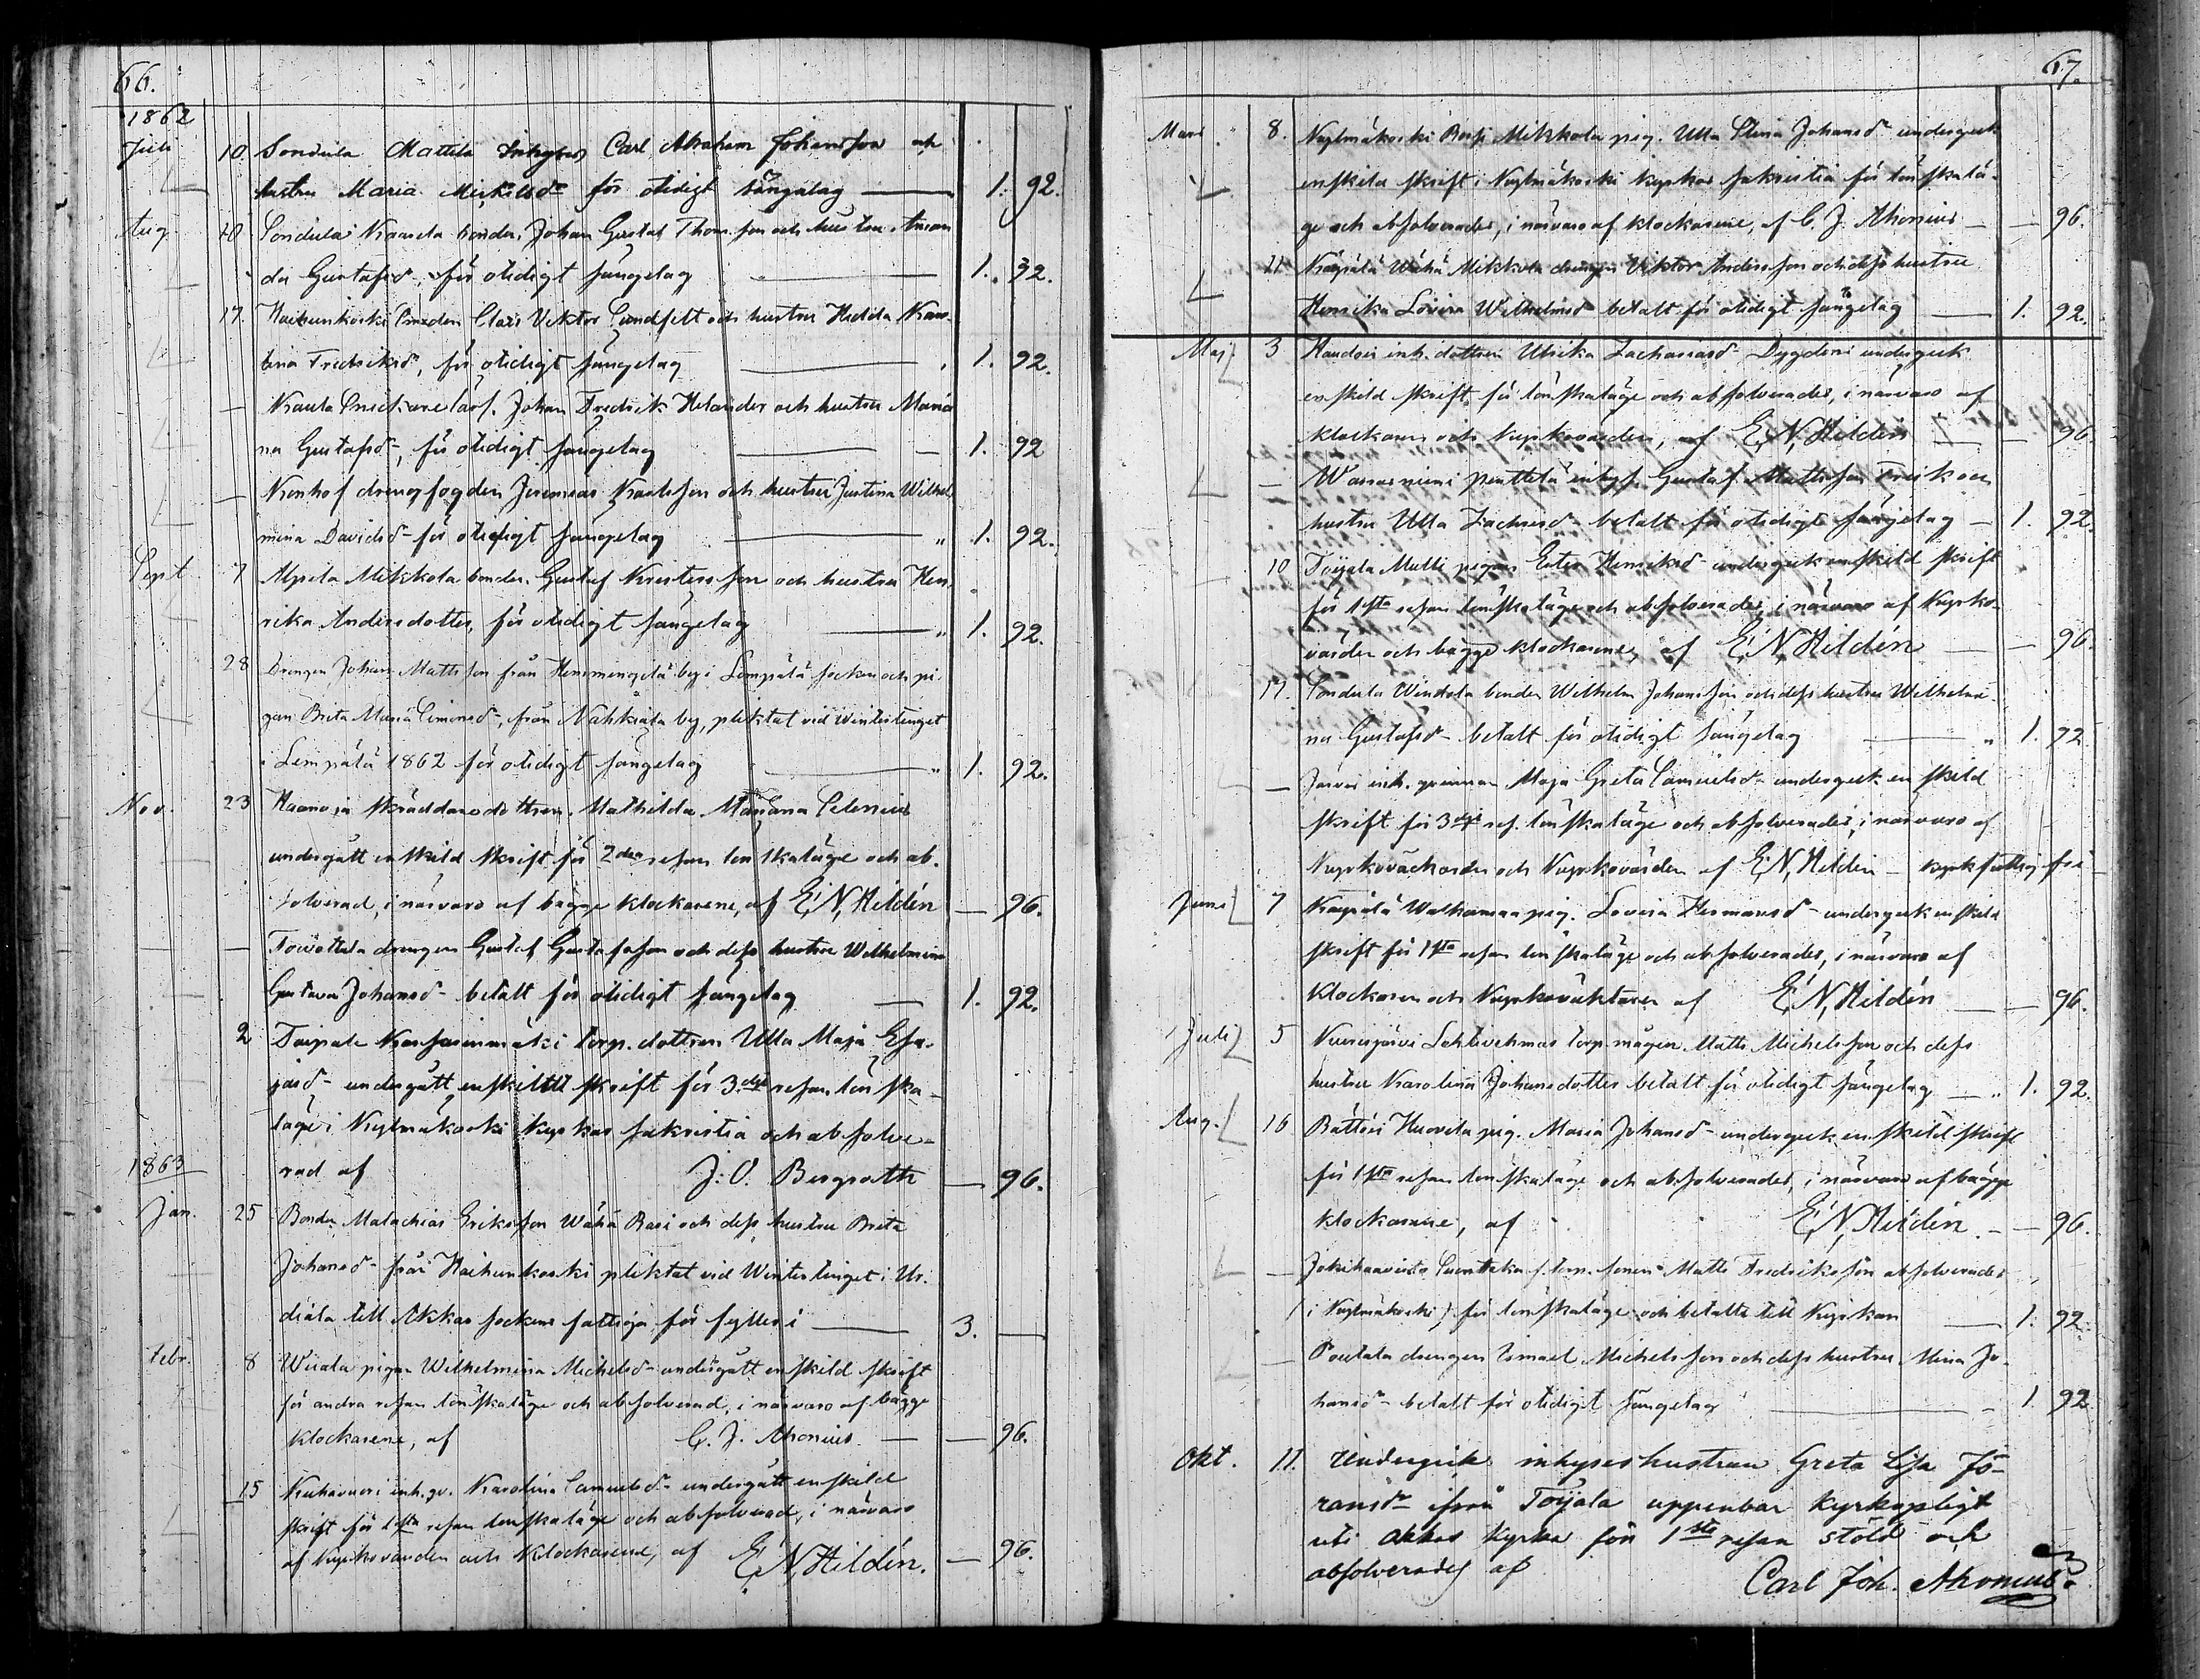 66.
1862
Juli 10. Sondula Mattila Inhyses Carl Abraham Johansson och
hustru Maria Michelsd:r för otidigt sängelag 1. 92.
Aug. 10 Sondula Kaarela bonden Johan Gustaf Thom.son och hustru Aman
da Gustafsd:r, för otidigt sängelag 1. 92.
17. Haihunkoski Smeden Claës Viktor Lundfelt och hustru Hedda Karo-
lina Fredriksd:r, för otidigt sängelag 1. 92.
— Snickare Johan Fredrik Helander och hustru Maria
na Gustafsd:r, för otidigt sängelag 1. 92
— drengfogden Jeremias Karlsson och hustru Justina Wilhel
mina Davidsd:r för otidigt sängelag 1. 92.
Sept 7 Mikkola bonden Gustaf Kristersson och hustru Hen
rika Andersdotter, för otidigt sängelag 1. 92.
28 Drengen Johan Mattsson från by i Lempälä socken och pi-
gan Brita Maria Simonsd:r, från Nahkiala by, pliktat vid Wintertinget
i Lempälä 1862 för otidigt sängelag 1. 92.
Nov. 23 skräddaredottren Mathilda Mariana Selenius
undergått enskild skrift för 2dra resan lönskaläge och ab-
solverad, i närvaro af bägge klockarene, af E. N. Hildén — 96.
— drengen Gustaf Gustafsson och dess hustru Wilhelmina
Gustava Johansd:r betalt för otidigt sängelag 1. 92.
2 Taipale torp. dottren Ulla Maja Esa-
iasd:r undergått enskildt skrift för 3dje resan lönska-
läge i Kylmäkoski kyrkas sakristia och absolve-
1863 rad af J. O. Bergroth — 96.
Jan. 25 Bonden Malachias Eriksson Wähä Rasi och dess hustru Brita
Johansd:r från Haihunkoski pliktat vid Wintertinget i Ur-
diala till Akkas sockens fattiga för fylleri 3. —
Febr. 8 Wiiala pigan Wilhelmina Michelsd:r undergått enskild skrift
för andra resan lönskaläge och absolverad, i närvaro af bägge
klockarene, af C. J. Ahonius — 96.
15 inh. qv. Karolina Samuelsd:r undergått enskild
skrift för 1sta resan lönskaläge och absolverad, i närvaro
af Kyrkovärden och Klockarene, af E. N. Hildén. — 96.
67.
Mars 8. Kylmäkoski Mikkola pig. Ulla Stina Johansd:r undergick
enskild skrift i Kylmäkoski kyrkas sakristia för lönskalä-
ge och absolverades, i närvaro af klockarene, af C. J. Ahonius — 96.
Käpilä Wähä Mikkola drengen Viktor Andersson och dess hustru
Henrika Lovisa Wilhelmsd:r betalt för otidigt sängelag 1. 92.
Maj 3 inh. dottren Ulrika Zachariasd:r undergick
enskild skrift för lönskaläge och absolverades, i närvaro af
klockaren och Kyrkovärden, af E. N. Hildén — 96.
— inhys. Gustaf Mattsson och
hustru Ulla betalt för otidigt sängelag 1. 92.
10 Toijala Matti pigan Ester Henriksd:r undergick enskild skrift
för 1sta resan lönskaläge och absolverades, i närvaro af Kyrko-
värden och bägge klockarene, af E. N. Hildén — 96.
17. Sondula bonden Wilhelm Johansson och dess hustru Wilhelmi
na Gustafsd:r betalt för otidigt sängelag 1. 92
— inh. qvinnan Maja Greta Samuelsd:r undergick enskild
skrift för 3dje res. lönskaläge och absolverades, i närvaro af
och Kyrkovärden af E. N. Hildén — kyrkfattig fri
Juni 7 pig. Lovisa Hermansd:r undergick enskild
skrift för 1sta resan lönskaläge och absolverades, i närvaro af
klockaren och Kyrkoväktaren af E. N. Hildén — 96.
Juli 5 torp. mågen Matts Michelsson och dess
hustru Karolina Johansdotter betalt för otidigt sängelag 1. 92.
Aug. 16 Huovila pig. Maria Johansd:r undergick enskild skrift
för 1sta resan lönskaläge och absolverades, i närvaro af bägge
klockarene, af E. N. Hildén. — 96.
— torp. sonen Matts Fredriksson absolverades
(i Kylmäkoski) för lönskaläge och betalte till Kyrkan 1. 92
— drengen Ismael Michelsson och dess hustru Mina Jo-
hansd:r betalt för otidigt sängelag 1. 92
Okt. 11. Undergick inhyseshustrun Greta Lisa Jö-
ransd:r ifrån Toijala uppenbar kyrkopligt
uti Akkas kyrka för 1sta resan stöld och
absolverades af Carl Joh. Ahonius.